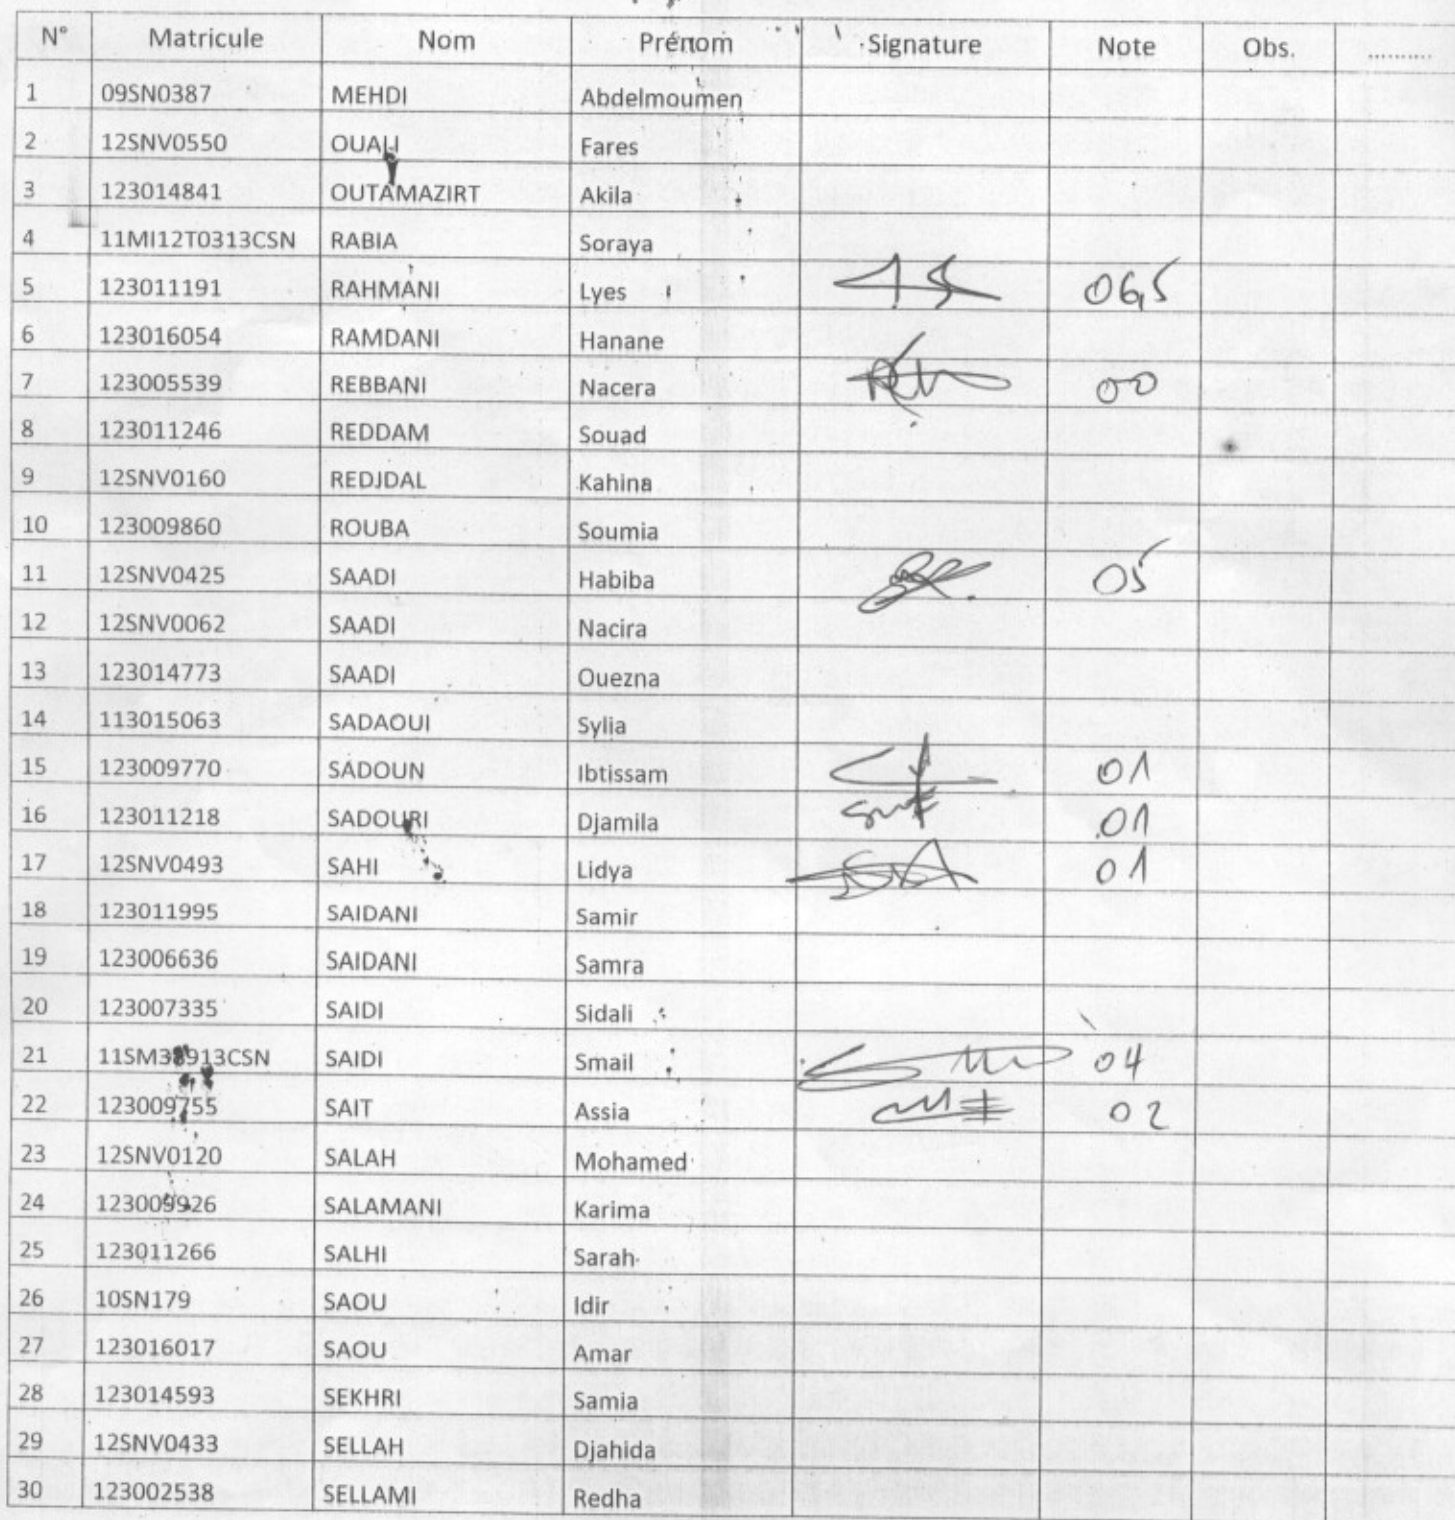 N° Matricule Nom Prénom Signature Note Obs. ............
1 09SN0387 MEHDI Abdelmoumen
2 12SNV0550 OUALI Fares
3 123014841 OUTAMAZIRT Akila
4 11MI12T0313CSN RABIA Soraya
5 123011191 RAHMANI Lyes 06,5
6 123016054 RAMDANI Hanane
7 123005539 REBBANI Nacera 00
8 123011246 REDDAM Souad
9 12SNV0160 REDJDAL Kahina
10 123009860 ROUBA Soumia
11 12SNV0425 SAADI Habiba 05
12 12SNV0062 SAADI Nacira
13 123014773 SAADI Ouezna
14 113015063 SADAOUI Sylia
15 123009770 SADOUN Ibtissam 01
16 123011218 SADOURI Djamila 01
17 12SNV0493 SAHI Lidya 01
18 123011995 SAIDANI Samir
19 123006636 SAIDANI Samra
20 123007335 SAIDI Sidali
21 SAIDI Smail 04
22 123009755 SAIT Assia 02
23 12SNV0120 SALAH Mohamed
24 123009926 SALAMANI Karima
25 123011266 SALHI Sarah
26 10SN179 SAOU Idir
27 123016017 SAOU Amar
28 123014593 SEKHRI Samia
29 12SNV0433 SELLAH Djahida
30 123002538 SELLAMI Redha